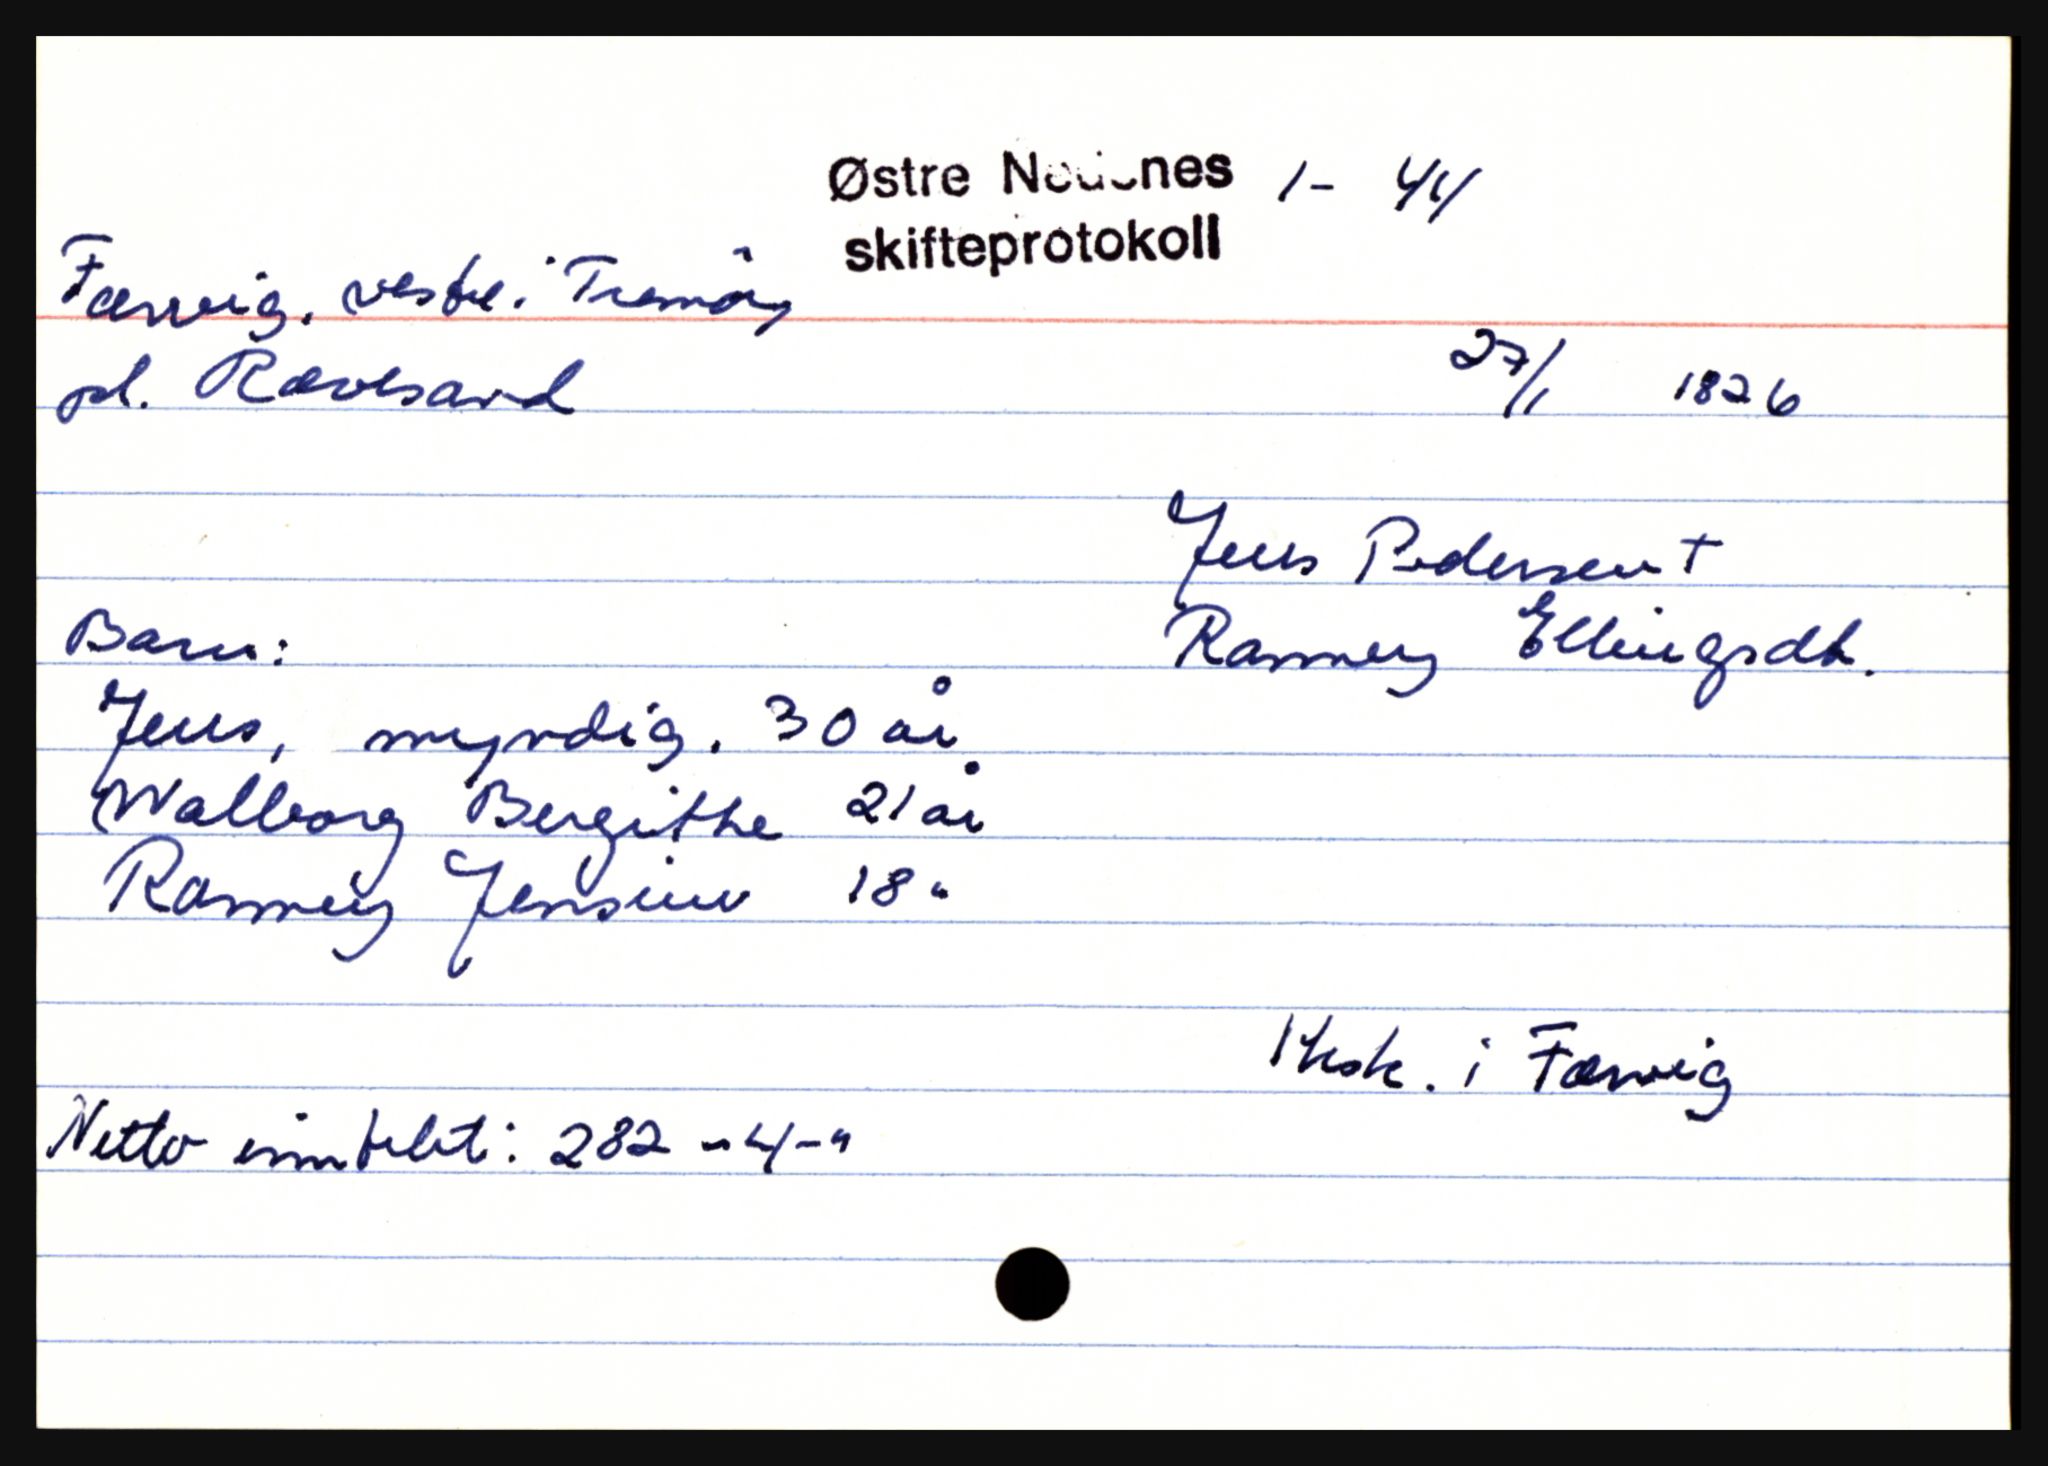 Østre Nedenes 1 - 44
skifteprotokoll
Færvig. vestre i Tromöy
pl. Rævesand
27/1 1826
Jens Pedersen †
Ranneig Ellingsdt.
Barn:
Jens, myndig. 30 år
Walborg Bergithe 21 år
Ranneig Jensine 18 "
1 Hsk. i Færvig
Netto inntekt: 282 - 4 - "